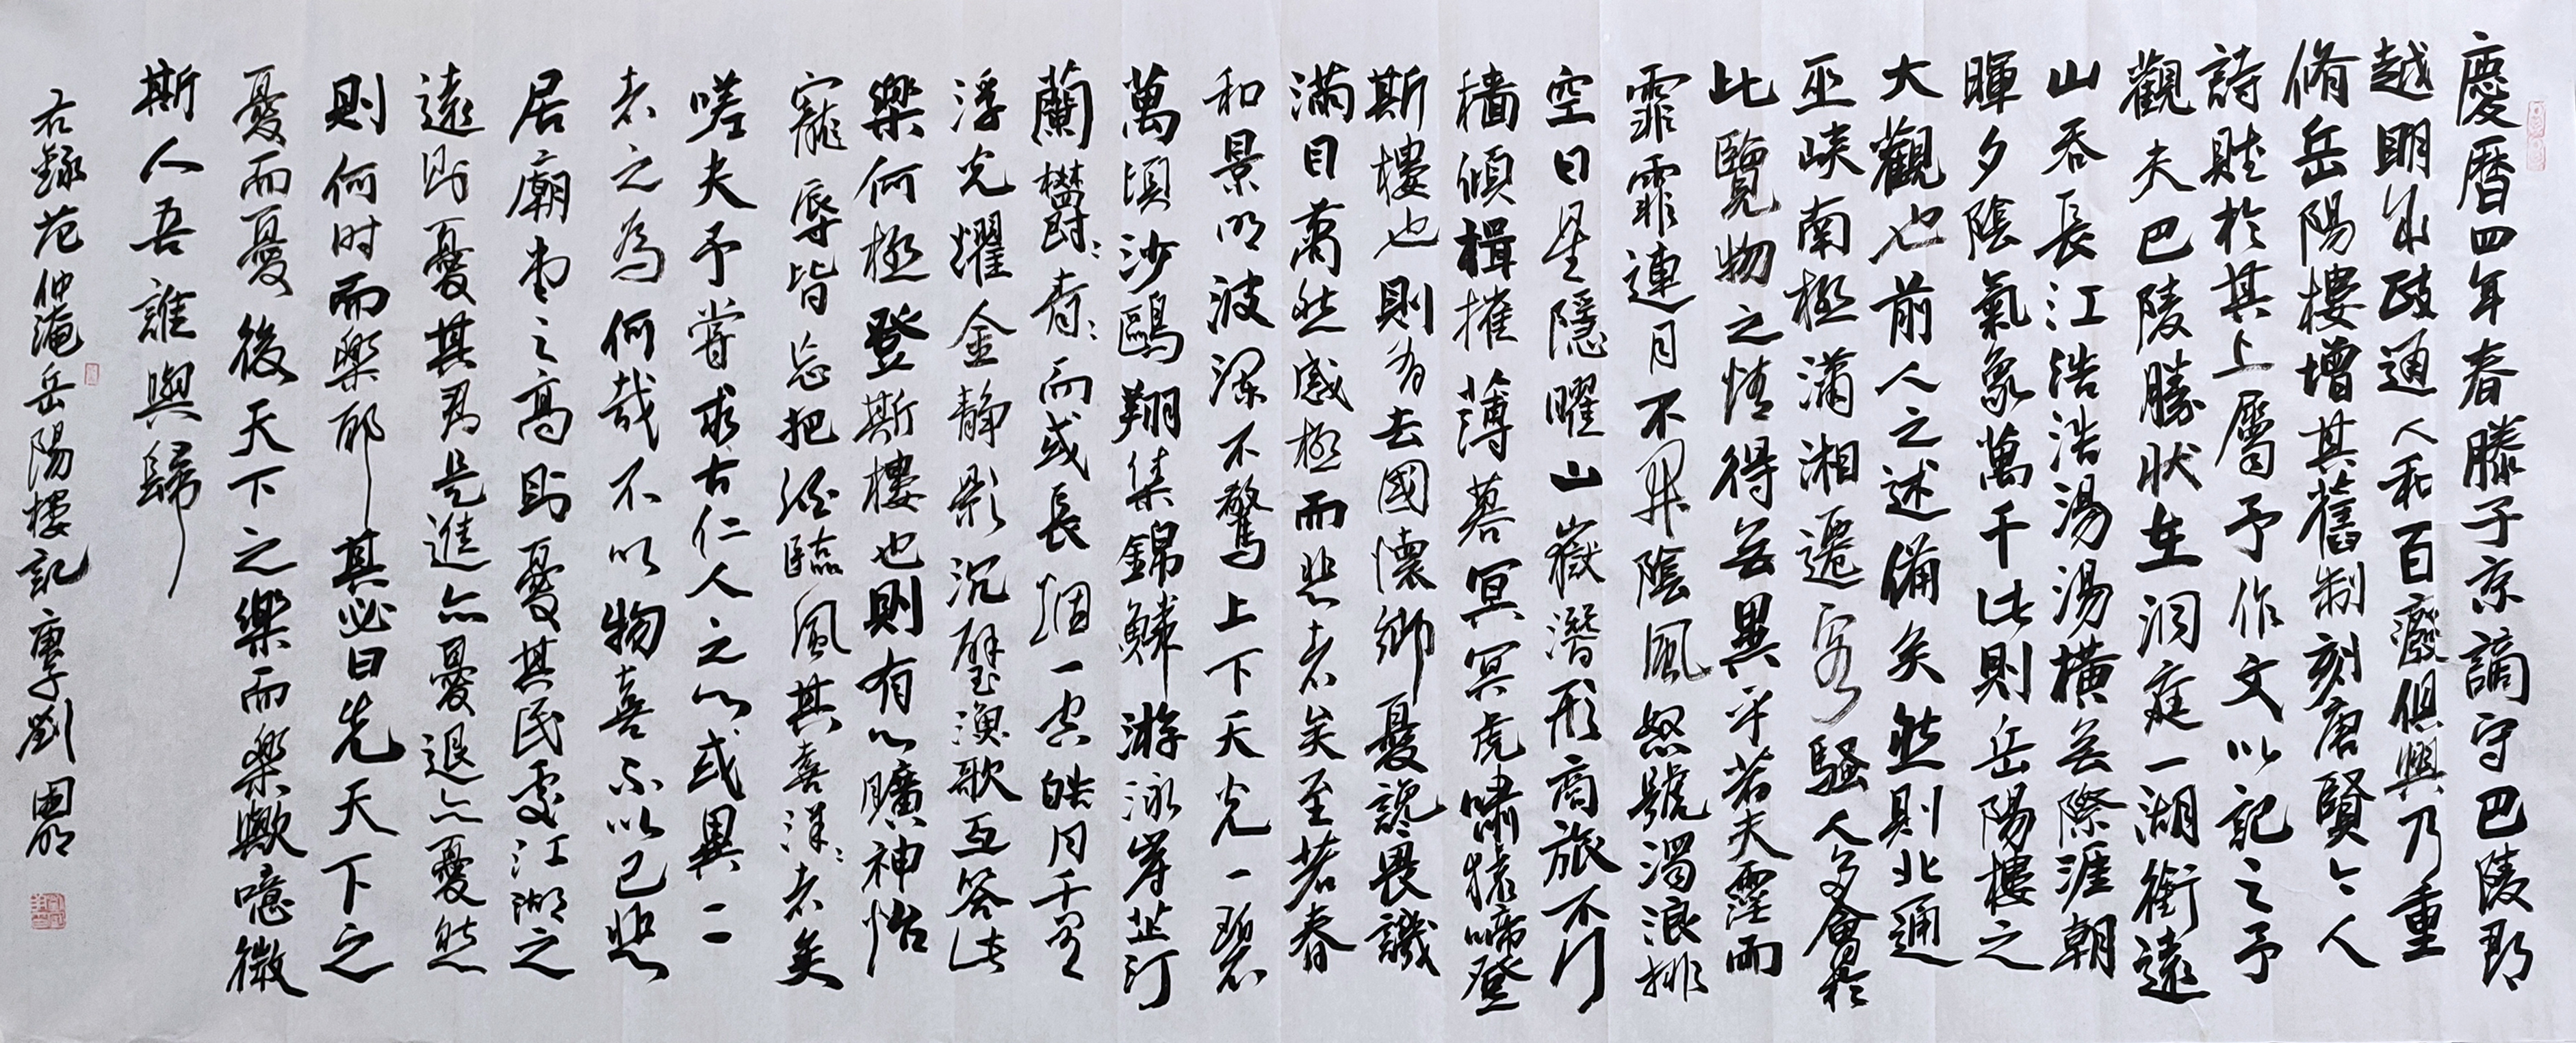 慶曆四年春滕子京謫守巴陵郡
越明年政通人和百廢俱興乃重
脩岳陽樓增其舊制刻唐賢今人
詩賦於其上屬予作文以記之予
觀夫巴陵勝狀在洞庭一湖銜遠
山吞長江浩浩湯湯橫無際涯朝
暉夕陰氣象萬千此則岳陽樓之
大觀也前人之述備矣然則北通
巫峽南極瀟湘遷客騷人多會於
此覽物之情得無異乎若夫霪雨
霏霏連月不開陰風怒號濁浪排
空日星隱曜山嶽潛形商旅不行
檣傾楫摧薄暮冥冥虎嘯猿啼登
斯樓也則有去國懷鄉憂讒畏譏
滿目蕭然感極而悲者矣至若春
和景明波瀾不驚上下天光一碧
萬頃沙鷗翔集錦鱗游泳岸芷汀
蘭鬱鬱青青而或長煙一空皓月千里
浮光耀金静影沉璧漁歌互答此
樂何極登斯樓也則有心曠神怡
寵辱皆忘把酒臨風其喜洋洋者矣
嗟夫予嘗求古仁人之心或異二
者之為何哉不以物喜不以己悲
居廟堂之高則憂其民處江湖之
遠則憂其君是進亦憂退亦憂然
則何时而樂耶其必曰先天下之
憂而憂後天下之樂而樂歟噫微
斯人吾誰與歸
右錄范仲淹岳陽樓記庚子劉國明